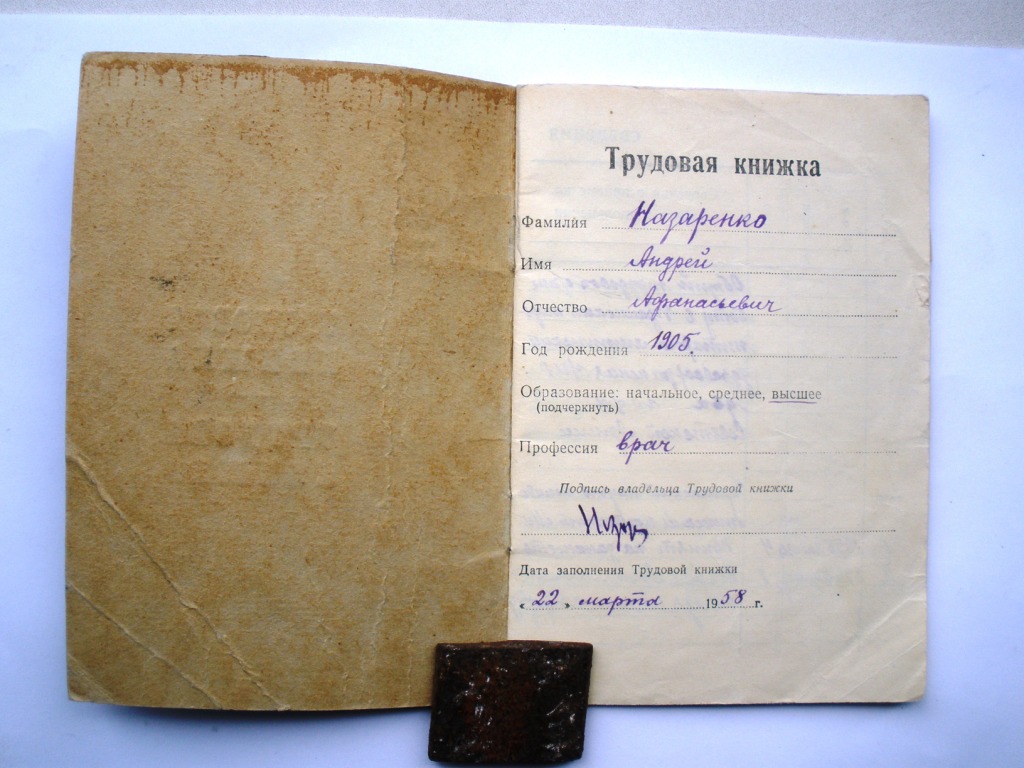 Трудовая книжка
Фамилия Назаренко
Имя Андрей
Отчество Афанасьевич
Год рождения 1905.
Образование: начальное, среднее, высшее
(подчеркнуть)
Профессия врач
Подпись владельца Трудовой книжки
Дата заполнения Трудовой книжки
« 22 » марта 1958 г.